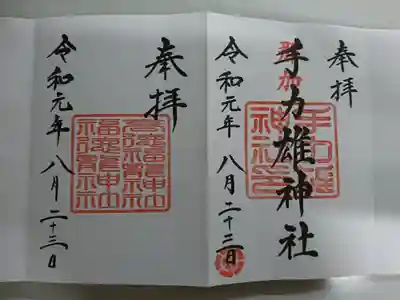 奉拝
手力雄神社
令和元年 八月二十三日
手力雄
神社印
奉拝
令和元年 八月二十三日